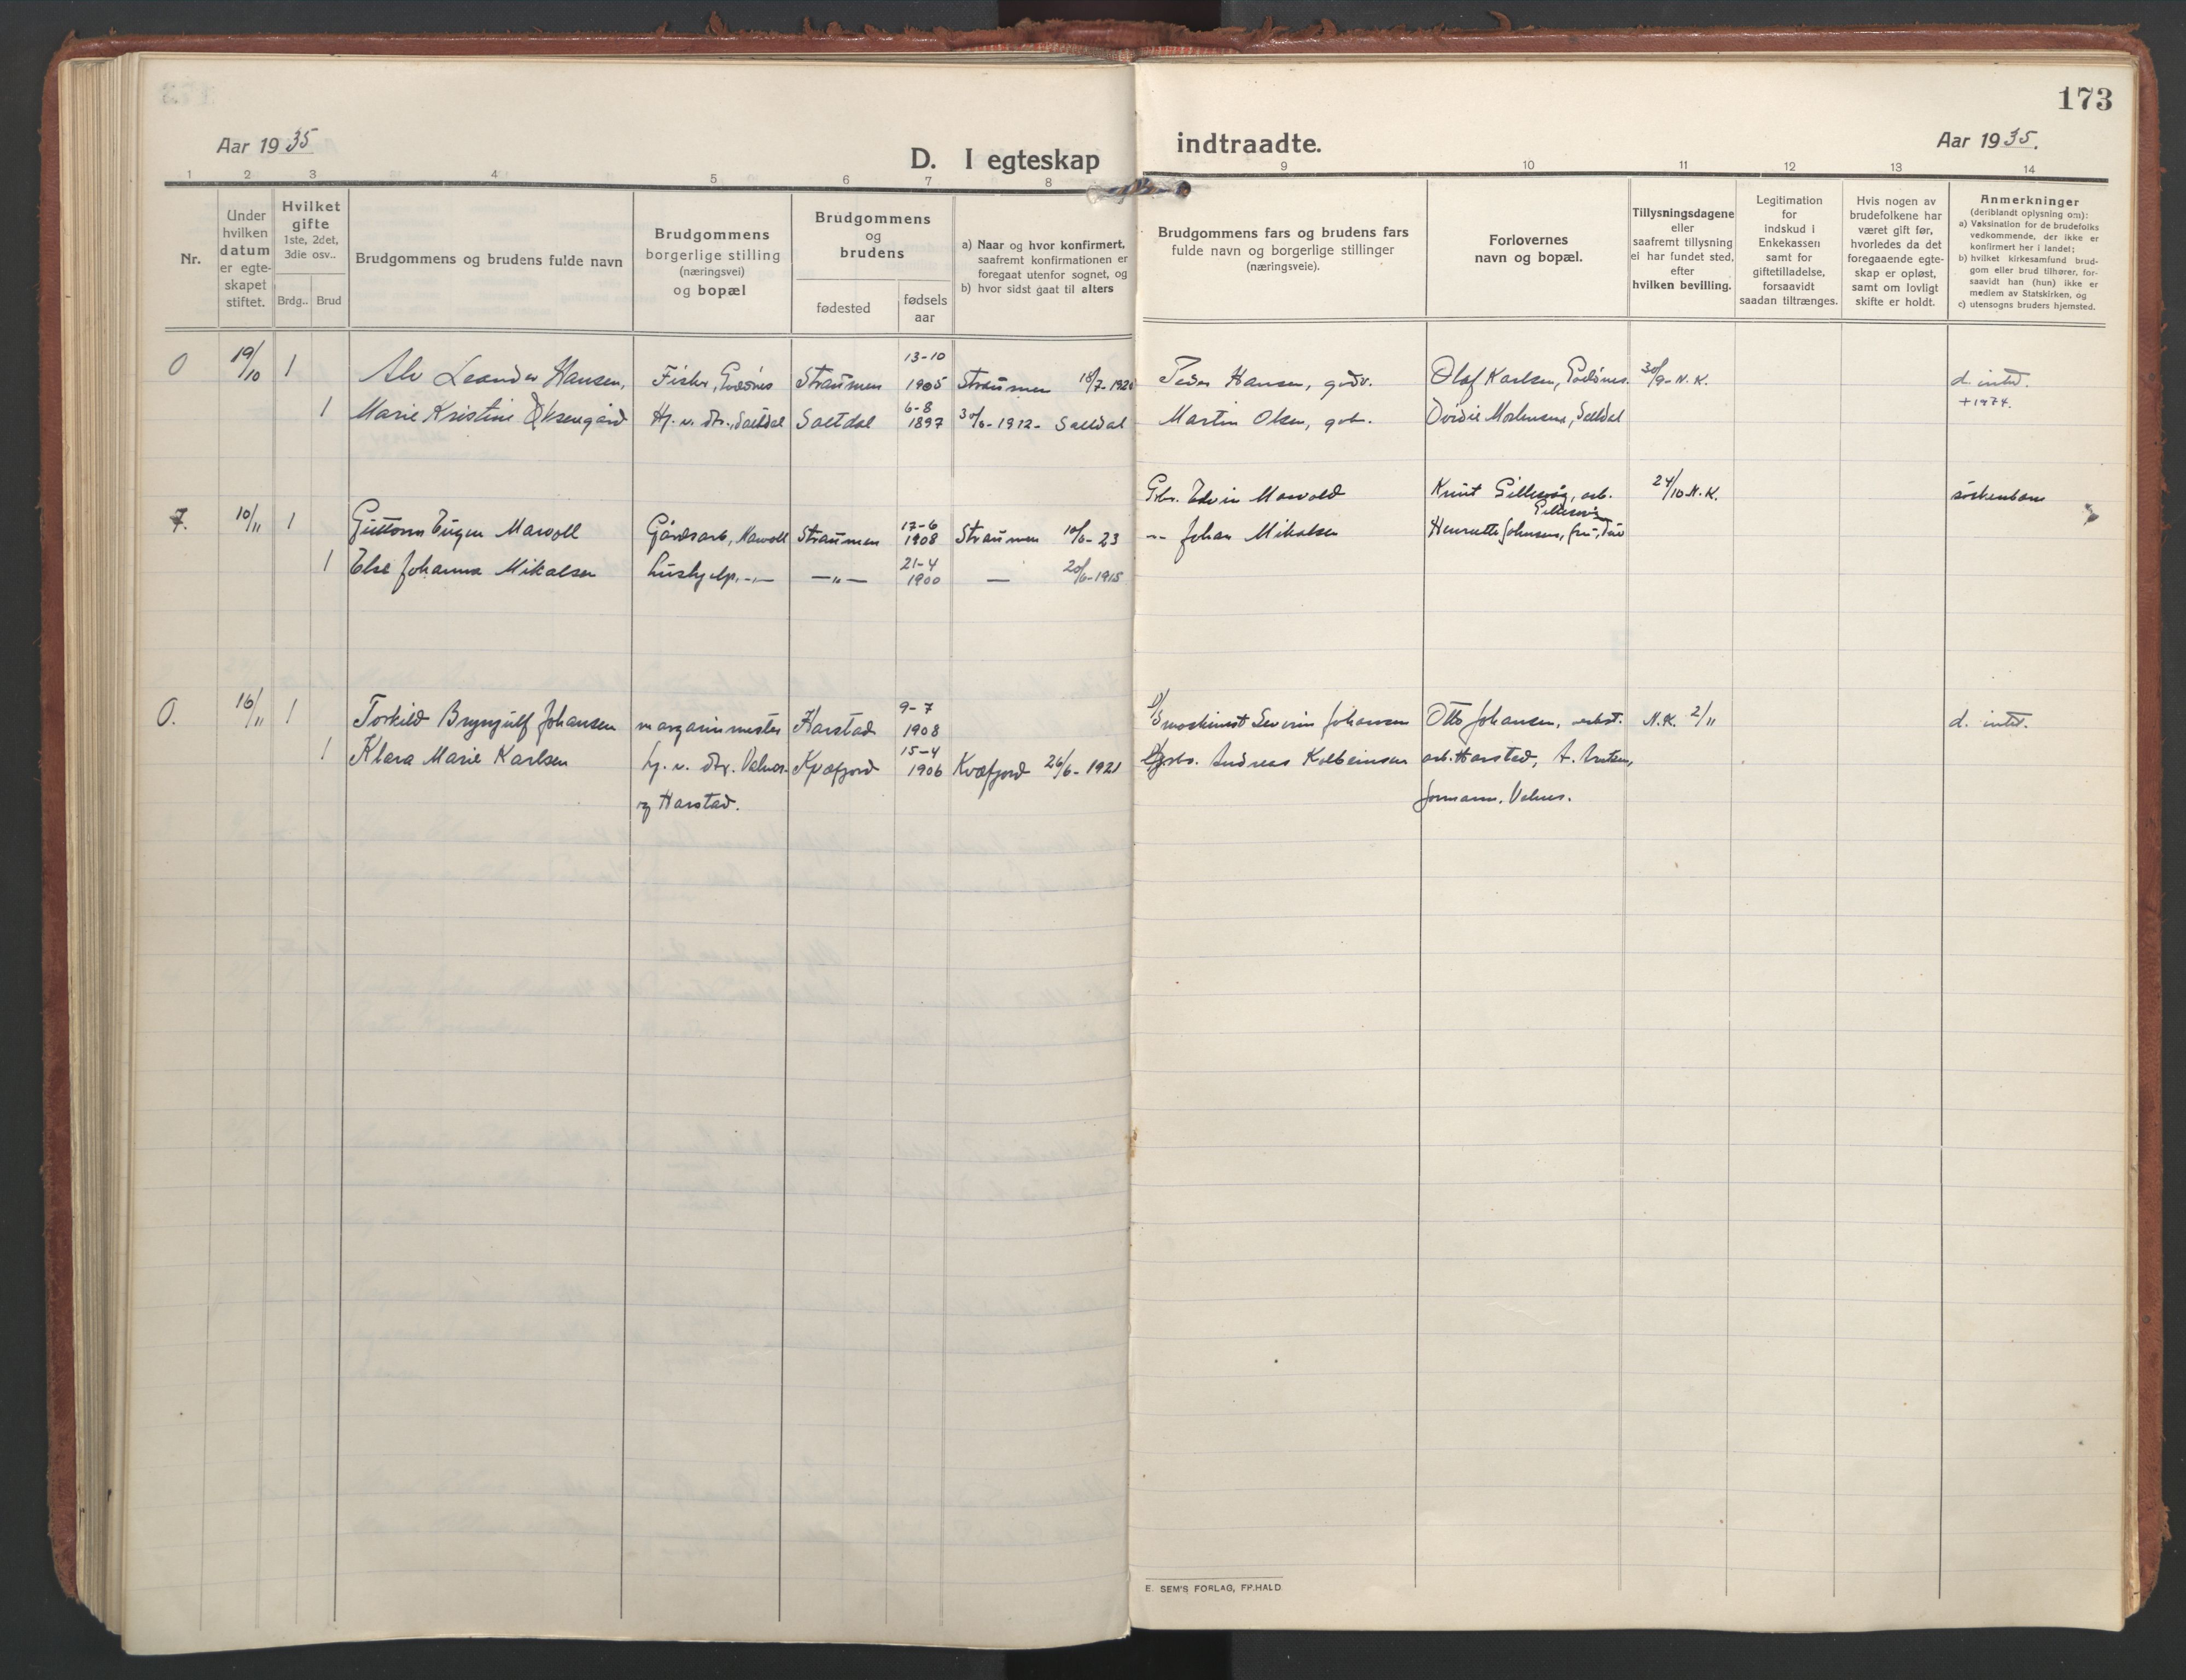 173
Aar 1935
D. I egteskap indtraadte.
Aar 1935.
1 2 3 4 5 6 7 8 9 10 11 12 13 14
Nr.
Under
hvilken
datum
er egte-
skapet
stiftet.
Hvilket
gifte
1ste, 2det,
3die osv..
Brdg.. Brud
Brudgommens og brudens fulde navn
Brudgommens
borgerlige stilling
(næringsvei)
og bopæl
Brudgommens
og
brudens
fødested
fødsels
aar
a) Naar og hvor konfirmert,
saafremt konfirmationen er
foregaat utenfor sognet, og
b) hvor sidst gaat til alters
Brudgommens fars og brudens fars
fulde navn og borgerlige stillinger
(næringsveie).
Forlovernes
navn og bopæl.
Tillysningsdagene
eller
saafremt tillysning
ei har fundet sted,
efter
hvilken bevilling.
Legitimation
for
indskud i
Enkekassen
samt for
giftetilladelse,
forsaavidt
saadan tiltrænges.
Hvis nogen av
brudefolkene har
været gift før,
hvorledes da det
foregaaende egte-
skap er opløst,
samt om lovligt
skifte er holdt.
Anmerkninger
(deriblandt oplysning om):
a) Vaksination for de brudefolks
vedkommende, der ikke er
konfirmert her i landet;
b) hvilket kirkesamfund brud-
gom eller brud tilhører, for-
saavidt han (hun) ikke er
medlem av Statskirken, og
c) utensogns bruders hjemsted.
13-10
0 19/10 1 Alv Leander Hansen, Fisker, Straumen 1905 Straumen 18/7-1920 Peder Hansen, Olaf Karlsen, 30/9-N.K. d. intet.
6-8
1 Marie Kristine Øksengård Hj. v. dtr., Saltdal Saltdal 1897 30/6-1912- Saltdal Martin Olsen, gbr. Mortensen, Saltdal
+1974.
Gbr. Edvin Marvold Knut Gillesvåg, arb. 24/10 N.K. søskenbarn
17-6
7. 10/11 1 Guttorm Eugen Marvoll Gårdsarb, Marvoll Straumen 1908 Straumen 10/6-23 -"- Johan Mikalsen Henriette Johnsen, fru,
Gillesvåg
21-4
1 Else Johanna Mikalsen hushjelp, -"- -"- 1900 - 20/6-1915
9-7
0. 16/11 1 Torkild Brynjulf Johansen margarinmester Harstad 1908 maskinist Severin Johansen Otto Johansen, N.K. 2/11 d. intet.
15-4
1 Klara Marie Karlsen hj. v. dtr. Valnes- Kvæfjord 1906 Kvæfjord 26/6-1921 gbr. Andreas Kolbeinsen arb. Harstad, A. Arntsen,
og Harstad.
formann. Valnes.
E. SEM'S FORLAG, FR.HALD.